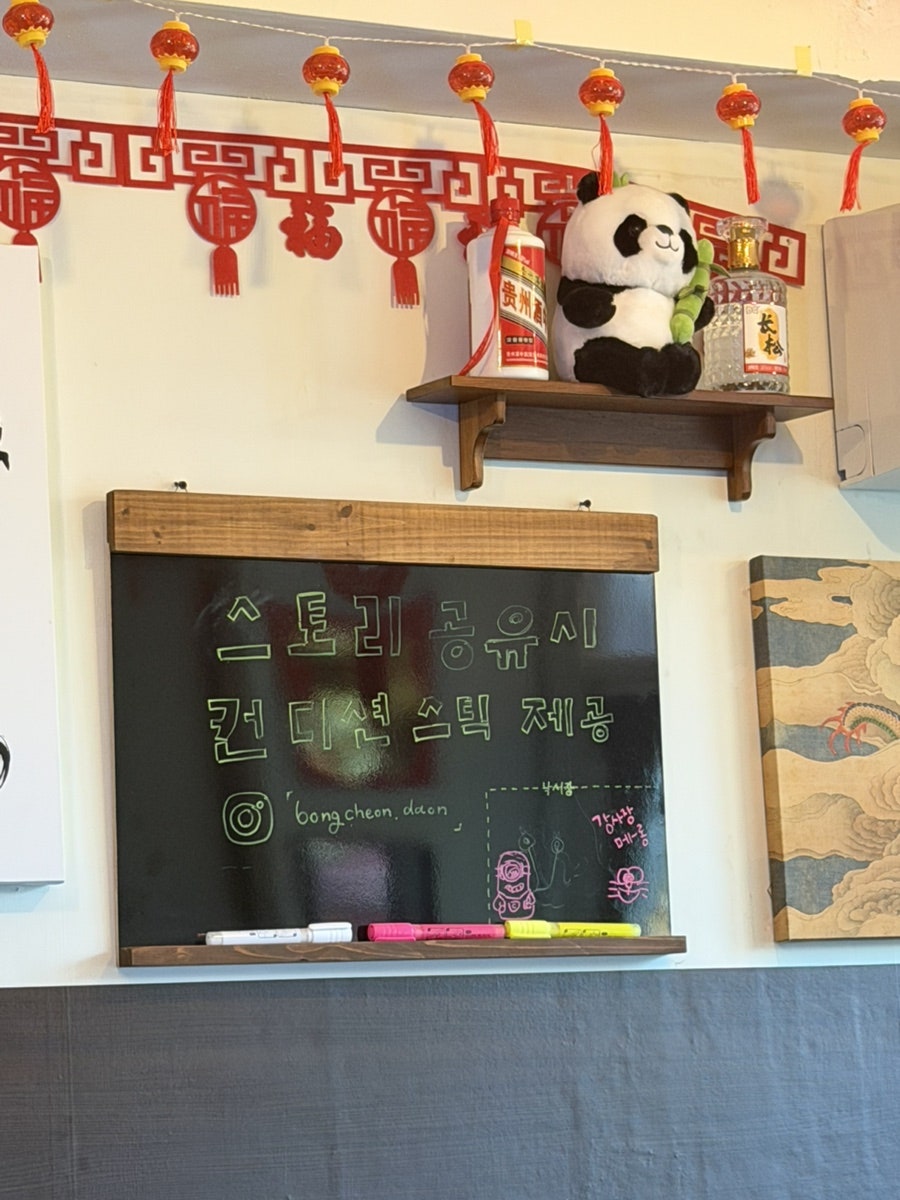 福
福
福
福
贵州酒
长松
스토리 공유시
컨디션스틱 제공
「bongcheon.daon」
낙서장
강사랑
메-롱